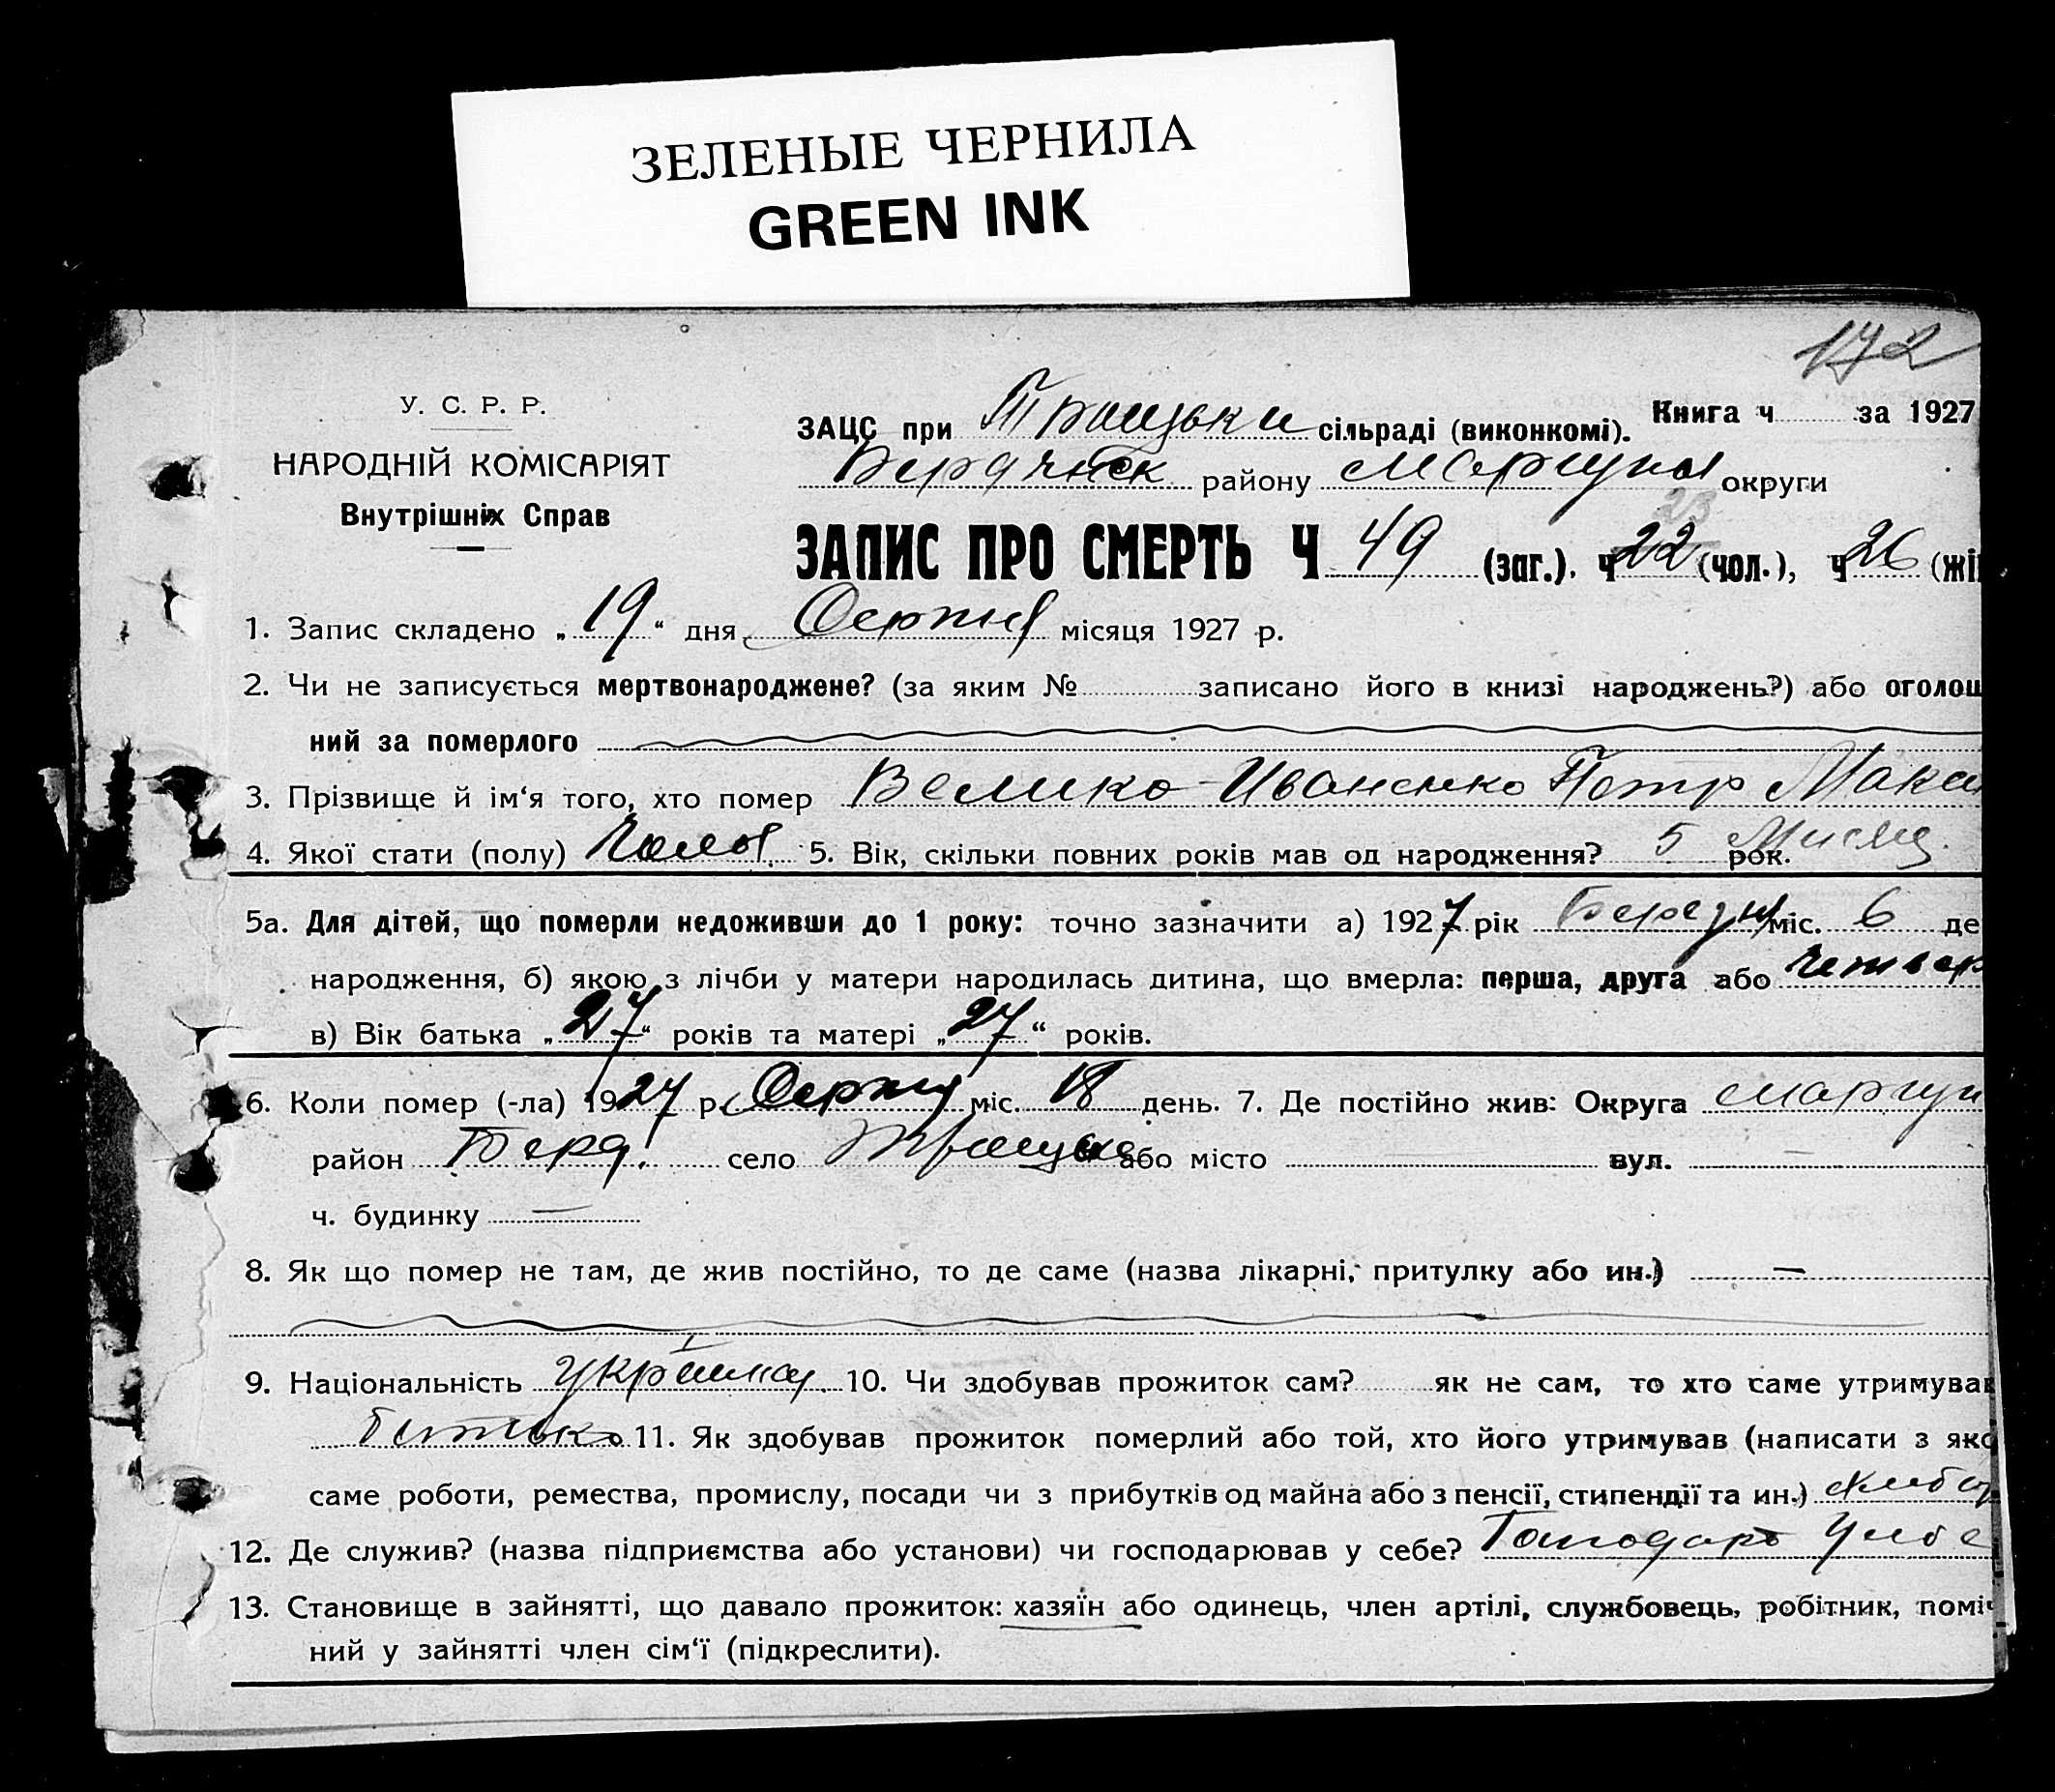 ЗЕЛЕНЫЕ ЧЕРНИЛА
GREEN INK
172
У. С. Р. Р.
НАРОДНІЙ КОМІСАРІЯТ
Внутрішніх Справ
Книга ч за 1927
ЗАЦС при Троицьки сільраді (виконкомі).
Бердянськ району Маріупол округи
23
ЗАПИС ПРО СМЕРТЬ Ч 49 (заг.). ч 22 (чол.), ч 26 (жі
1. Запис складено „19“ дня Серпня місяця 1927 р.
2. Чи не записується мертвонароджене? (за яким № записано його в книзі народжень?) або оголош
ний за померлого
3. Прізвище й ім‘я того, хто помер Велико-Иваненко Петр Макси
4. Якої стати (полу) Чолов. 5. Вік, скільки повних років мав од народження? 5 рок. Місяц.
5а. Для дітей, що померли недоживши до 1 року: точно зазначити а) 1927 рік Березня міс. 6 де
народження, б) якою з лічби у матери народилась дитина, що вмерла: перша, друга або четвер
в) Вік батька „27“ років та матері „27“ років.
6. Коли помер (-ла) 1927 р. Серпня міс. 18 день. 7. Де постійно жив: Округа Маріуп
район Берд. село Троицьке або місто — вул. —
ч. будинку —
8. Як що помер не там, де жив постійно, то де саме (назва лікарні, притулку або ин.) —
9. Національність 10. Чи здобував прожиток сам? як не сам, то хто саме утримував
батько 11. Як здобував прожиток померлий або той, хто його утримував (написати з яко
саме роботи, ремества, промислу, посади чи з прибутків од майна або з пенсії, стипендії та ин.)
12. Де служив? (назва підприємства або установи) чи господарював у себе?
13. Становище в зайнятті, що давало прожиток: хазяїн або одинець, член артілі, службовець, робітник, поміч
ний у зайнятті член сім‘ї (підкреслити).